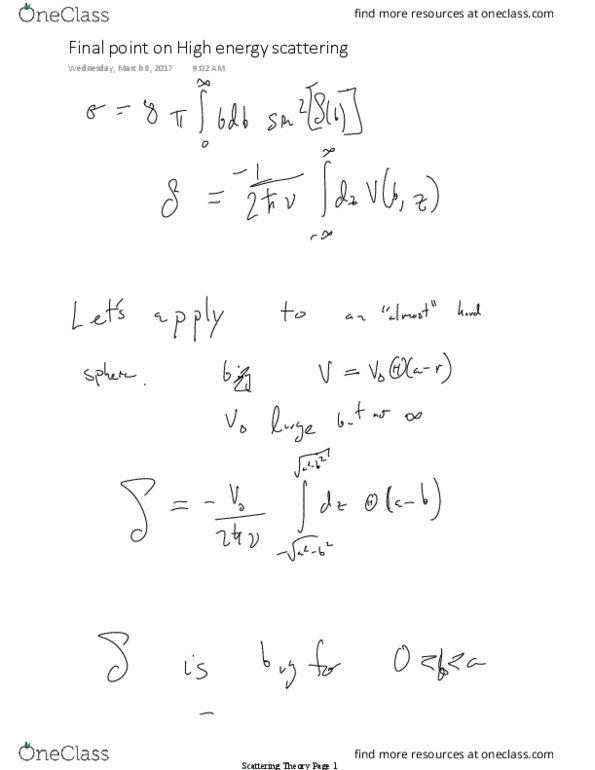 OneClass find more resources at oneclass.com
Final point on High energy scattering
Wednesday, March 8, 2017 9:02 AM
σ = 8 π ∫₀^∞ b db sin²[δ(b)]
δ = -1/(2ħv) ∫_{-∞}^{∞} dz V(b, z)
Let's apply to an "almost" hard
sphere. V = V₀ Θ(a-r)
V₀ large but not ∞
δ = - V₀/(2ħv) ∫_{-√(a²-b²)}^{√(a²-b²)} dz Θ(a-b)
δ is big for 0<b<a
OneClass find more resources at oneclass.com
Scattering Theory Page 1